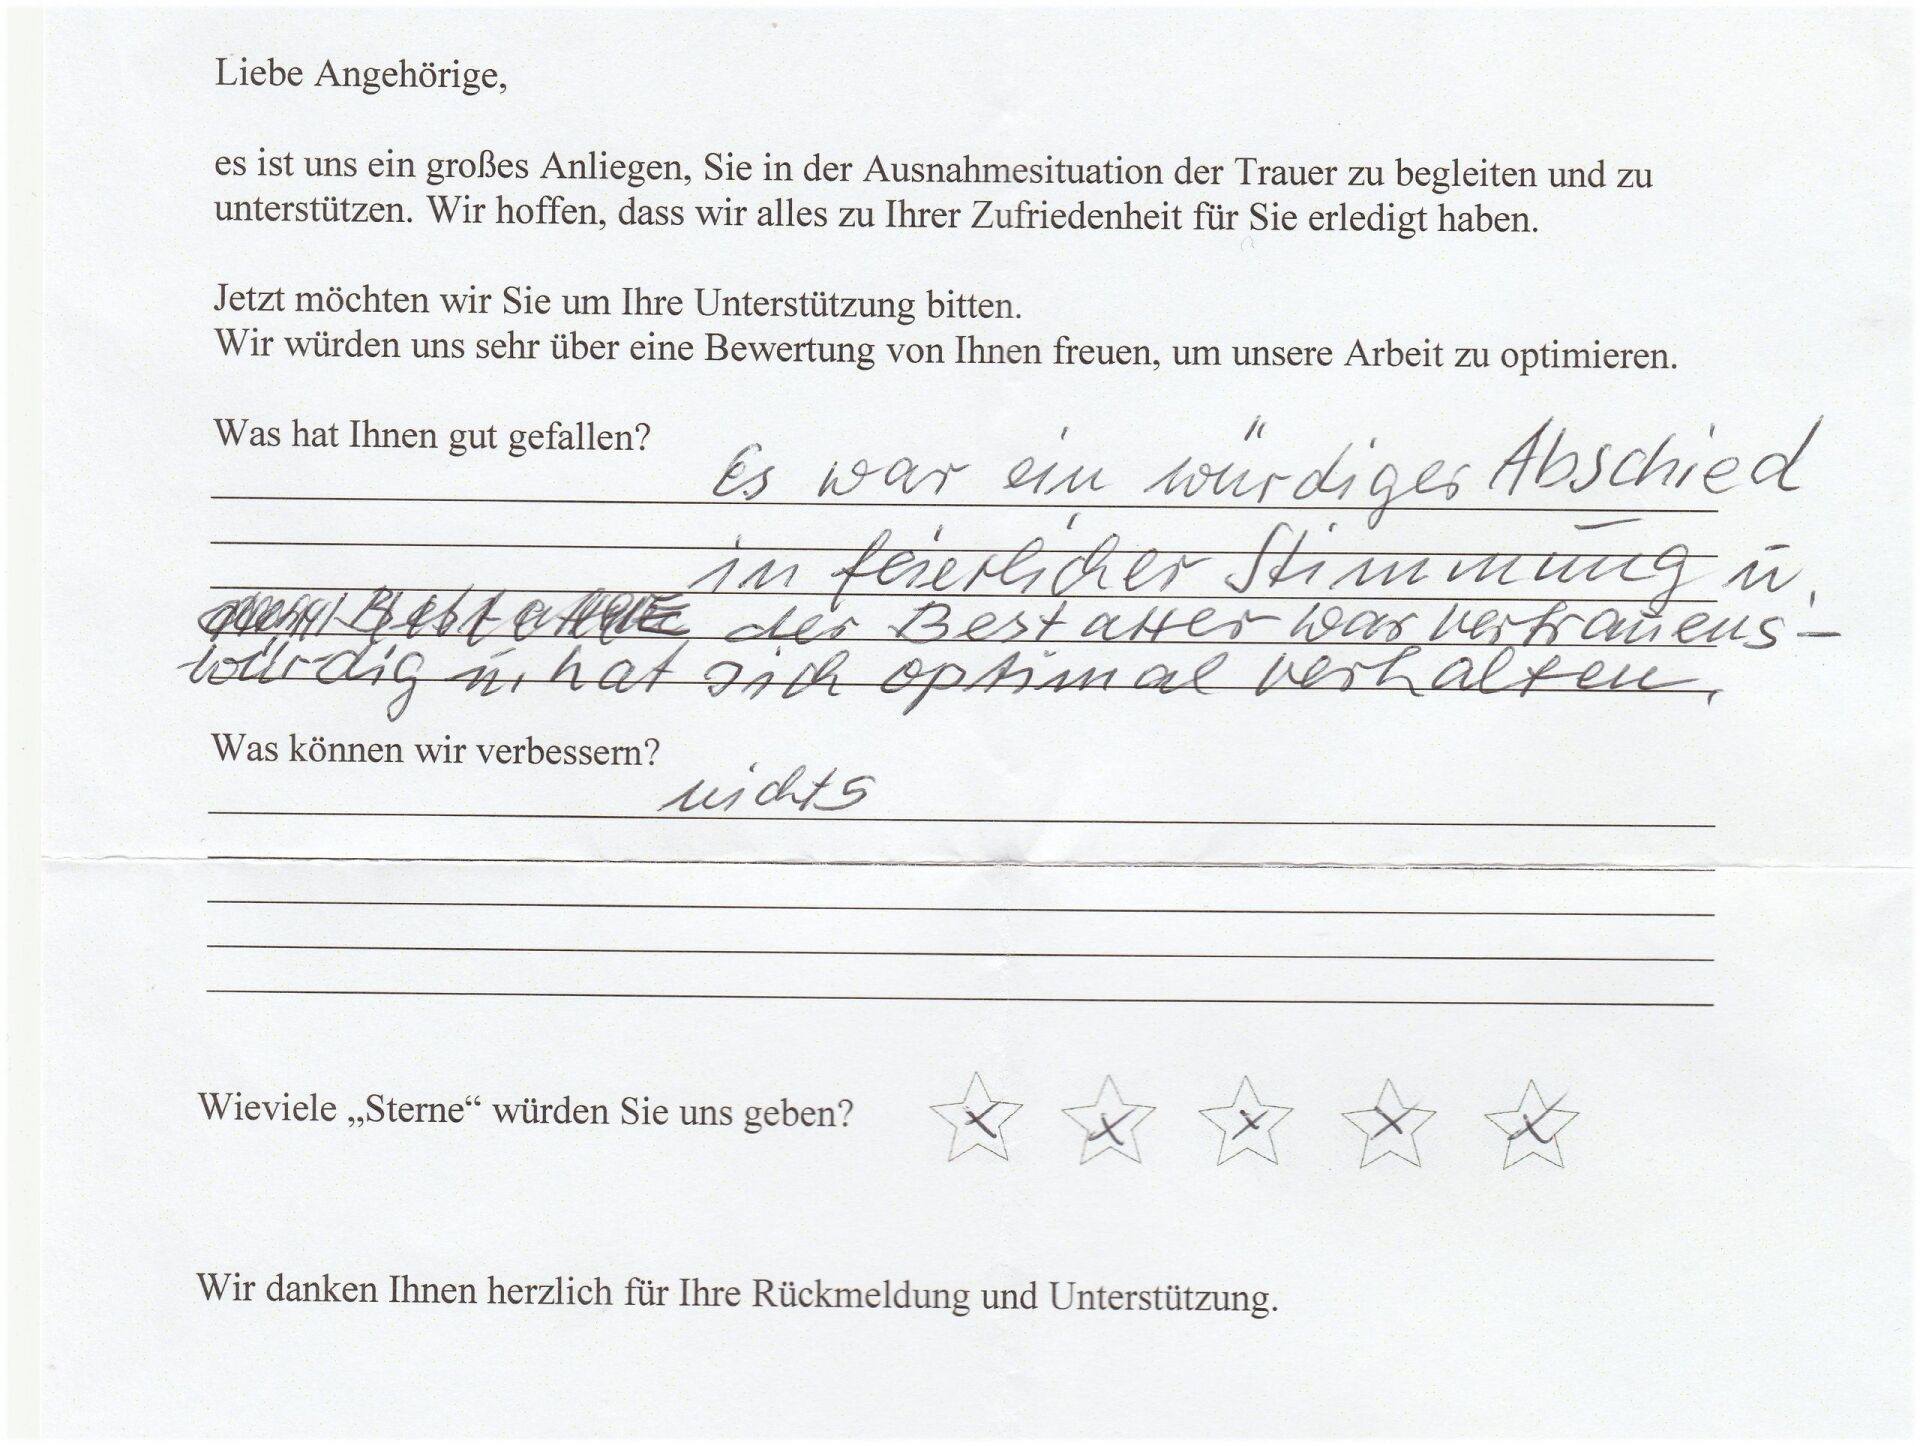 Liebe Angehörige,
es ist uns ein großes Anliegen, Sie in der Ausnahmesituation der Trauer zu begleiten und zu
unterstützen. Wir hoffen, dass wir alles zu Ihrer Zufriedenheit für Sie erledigt haben.
Jetzt möchten wir Sie um Ihre Unterstützung bitten.
Wir würden uns sehr über eine Bewertung von Ihnen freuen, um unsere Arbeit zu optimieren.
Was hat Ihnen gut gefallen?
Es war ein würdiger Abschied
in feierlicher Stimmung u.
der Bestatter war vertrauens-
würdig u. hat sich optimal verhalten.
Was können wir verbessern?
nichts
Wieviele „Sterne“ würden Sie uns geben? x x x x x
Wir danken Ihnen herzlich für Ihre Rückmeldung und Unterstützung.